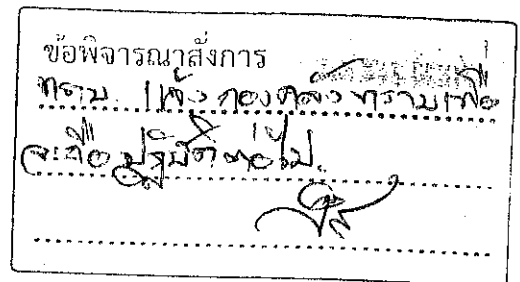 ข้อพิจารณาสั่งการ
ทราบ แจ้งกองคลังทราบเพื่อ
จะถือปฏิบัติต่อไป.